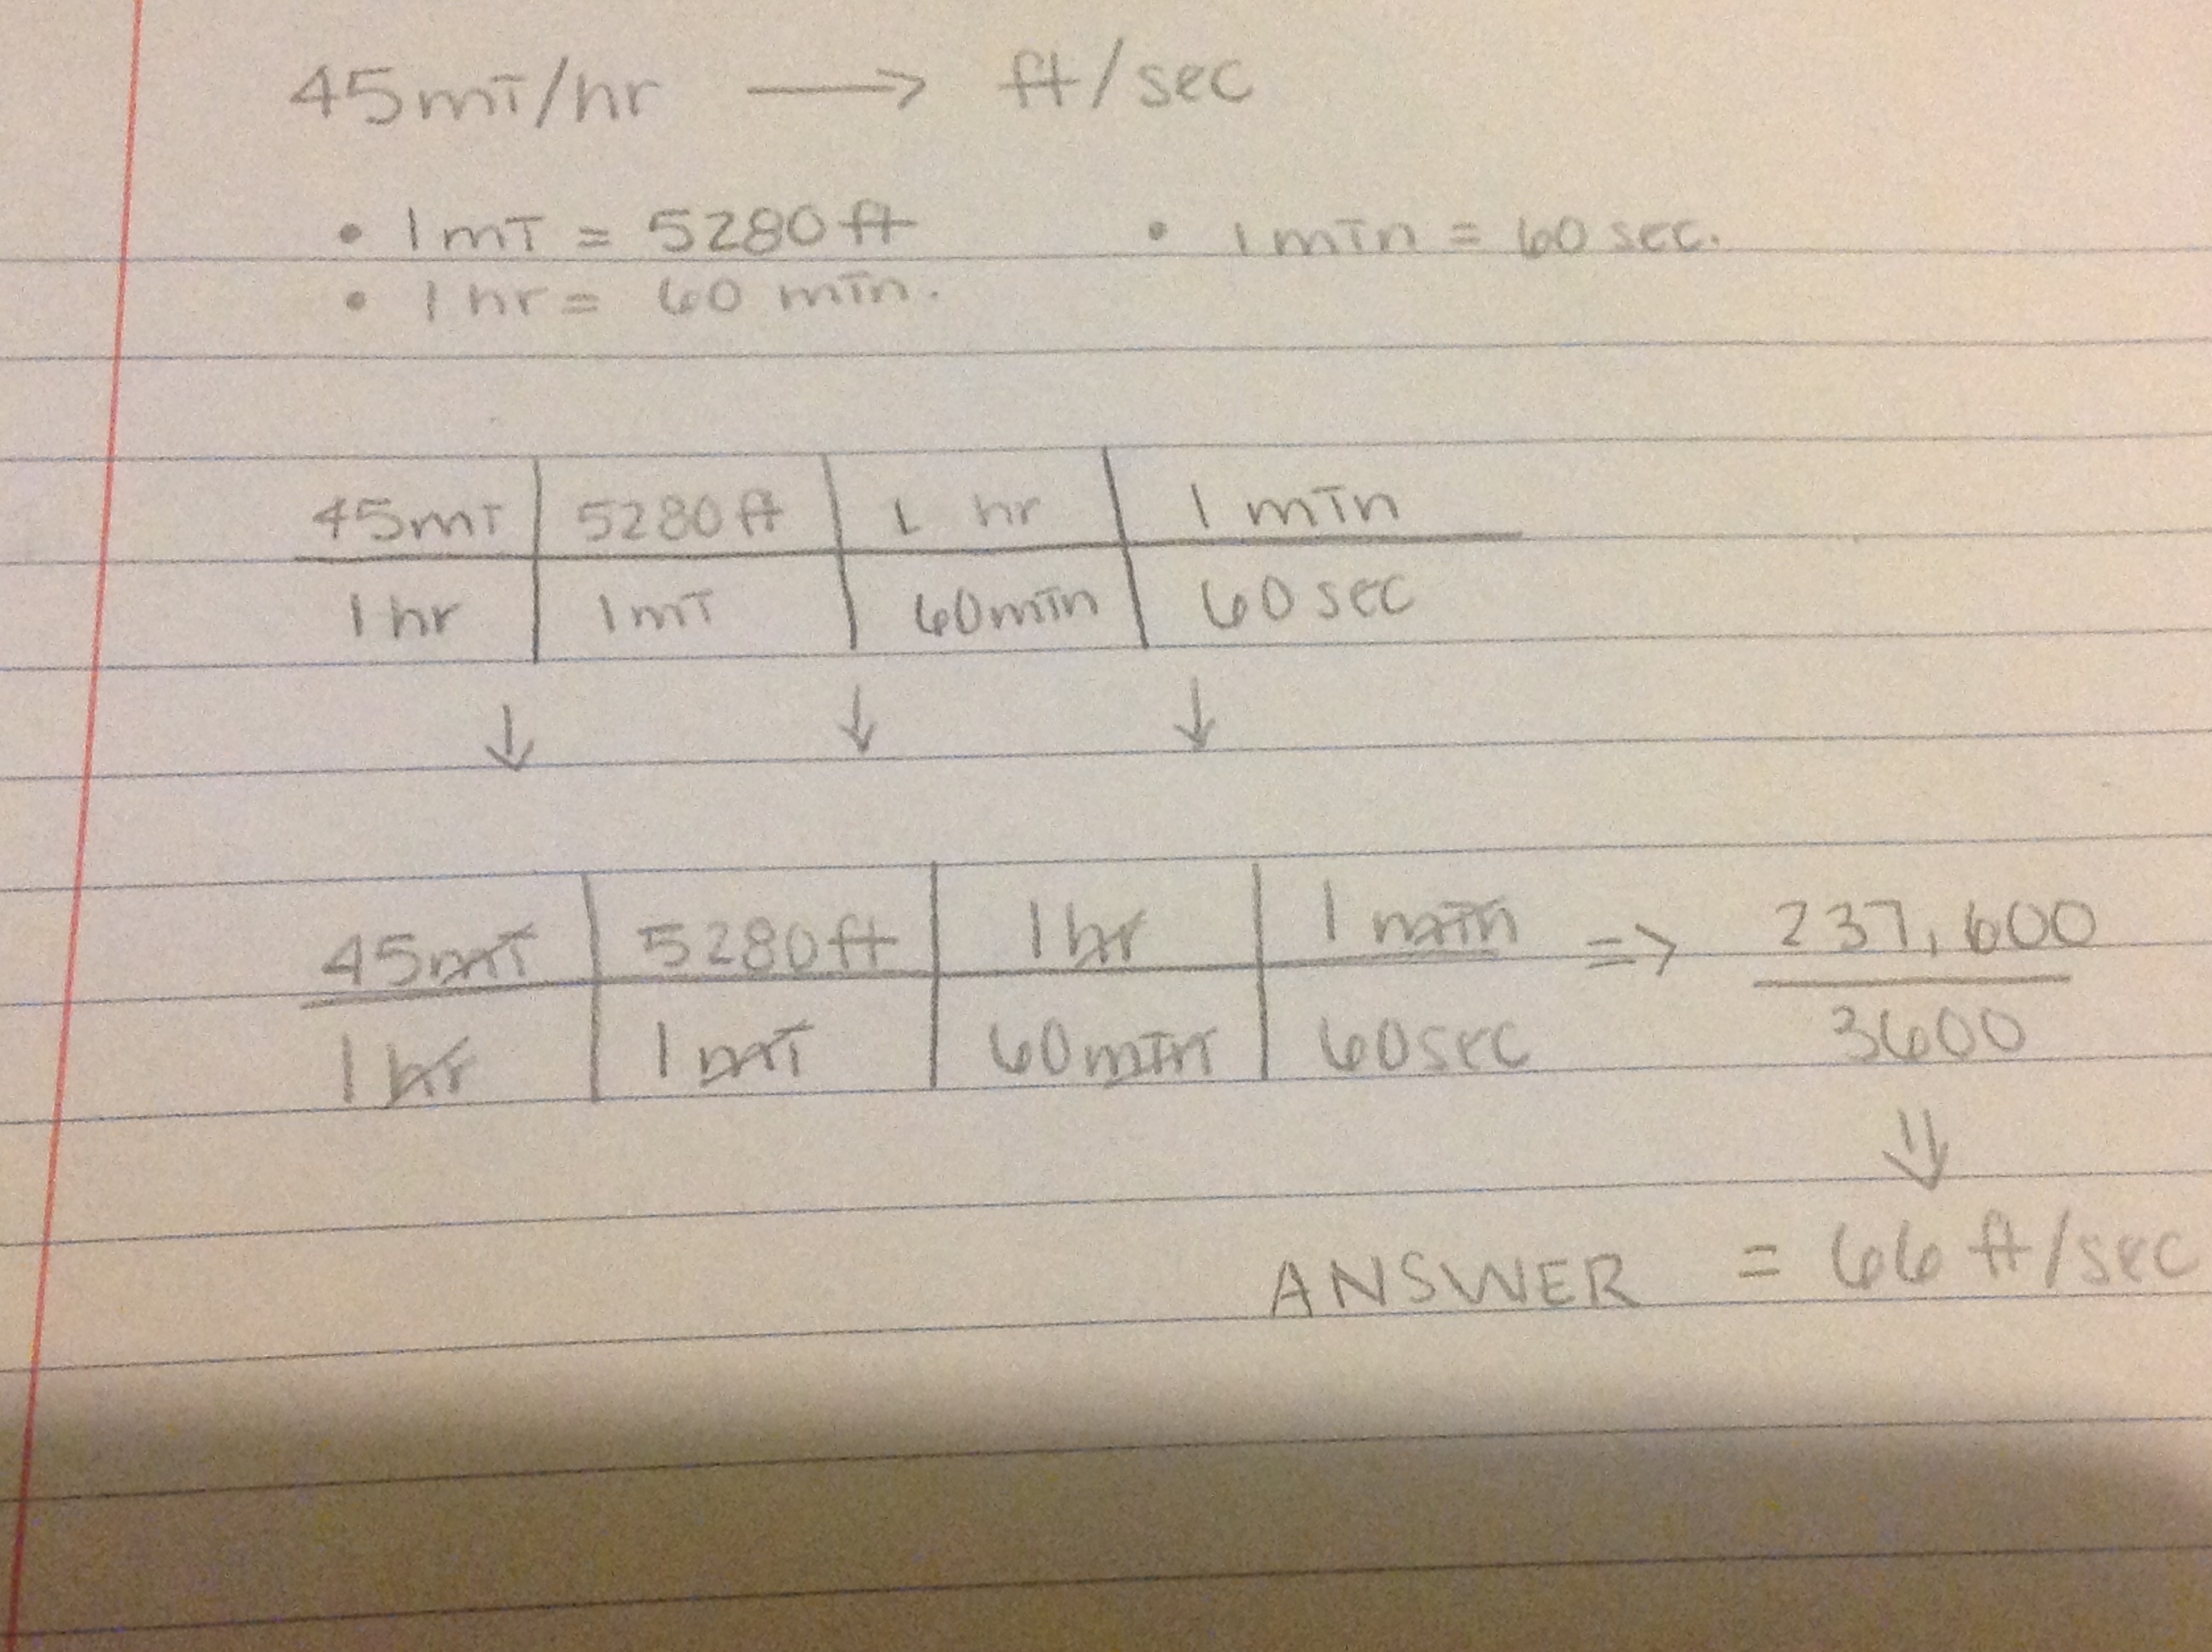 45mi/hr → ft/sec
• 1mi = 5280ft • 1min = 60 sec.
• 1 hr = 60 min.
45mi | 5280ft | 1 hr | 1 min
1 hr | 1mi | 60min | 60 sec
↓ ↓ ↓
45mi | 5280ft | 1 hr | 1 min => 237,600
1 hr | 1 mi | 60min | 60sec 3600
⇓
ANSWER = 66 ft/sec